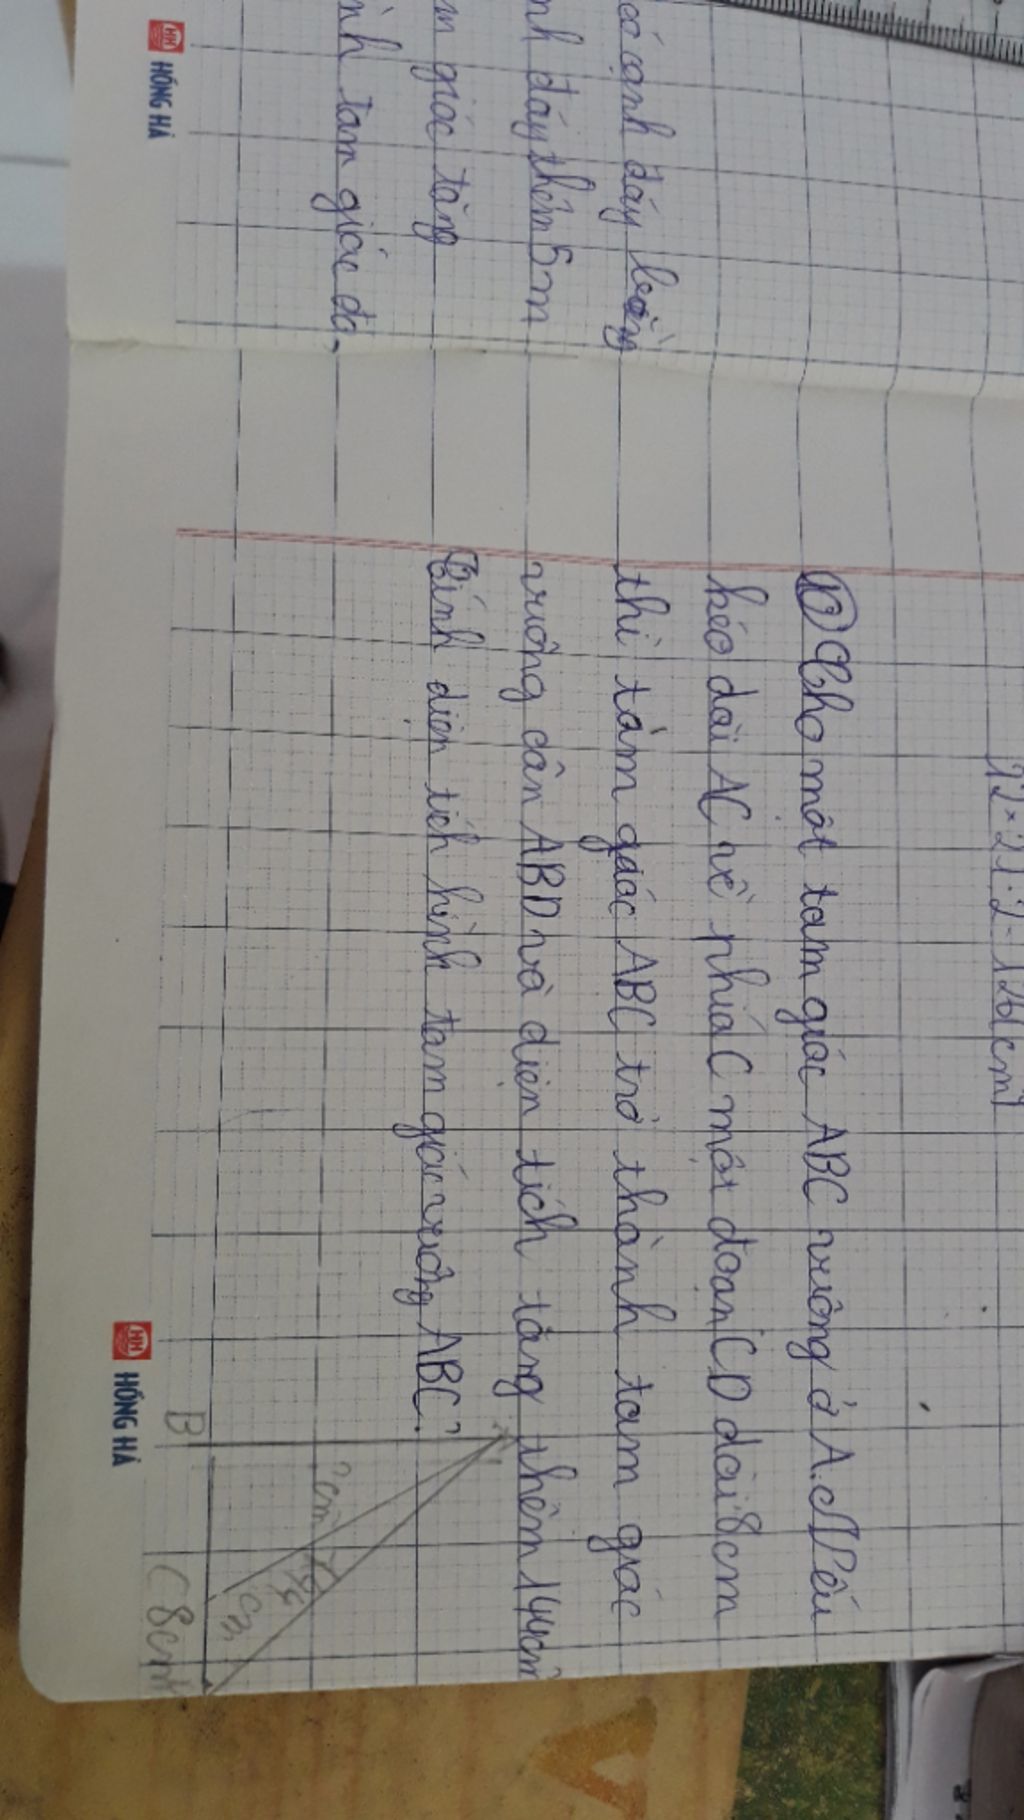 12×21:2=126(cm²)
Cho một tam giác ABC vuông ở A. Nếu
kéo dài AC về phía C một đoạn CD dài 8cm
thì tam giác ABC trở thành tam giác
vuông cân ABD và diện tích tăng thêm 144cm²
Tính diện tích hình tam giác vuông ABC?
B
?cm
C 8cm
HỒNG HÀ
có cạnh đáy bằng
nh đáy thêm 5m
m giác tăng
nh tam giác đa
HỒNG HÀ